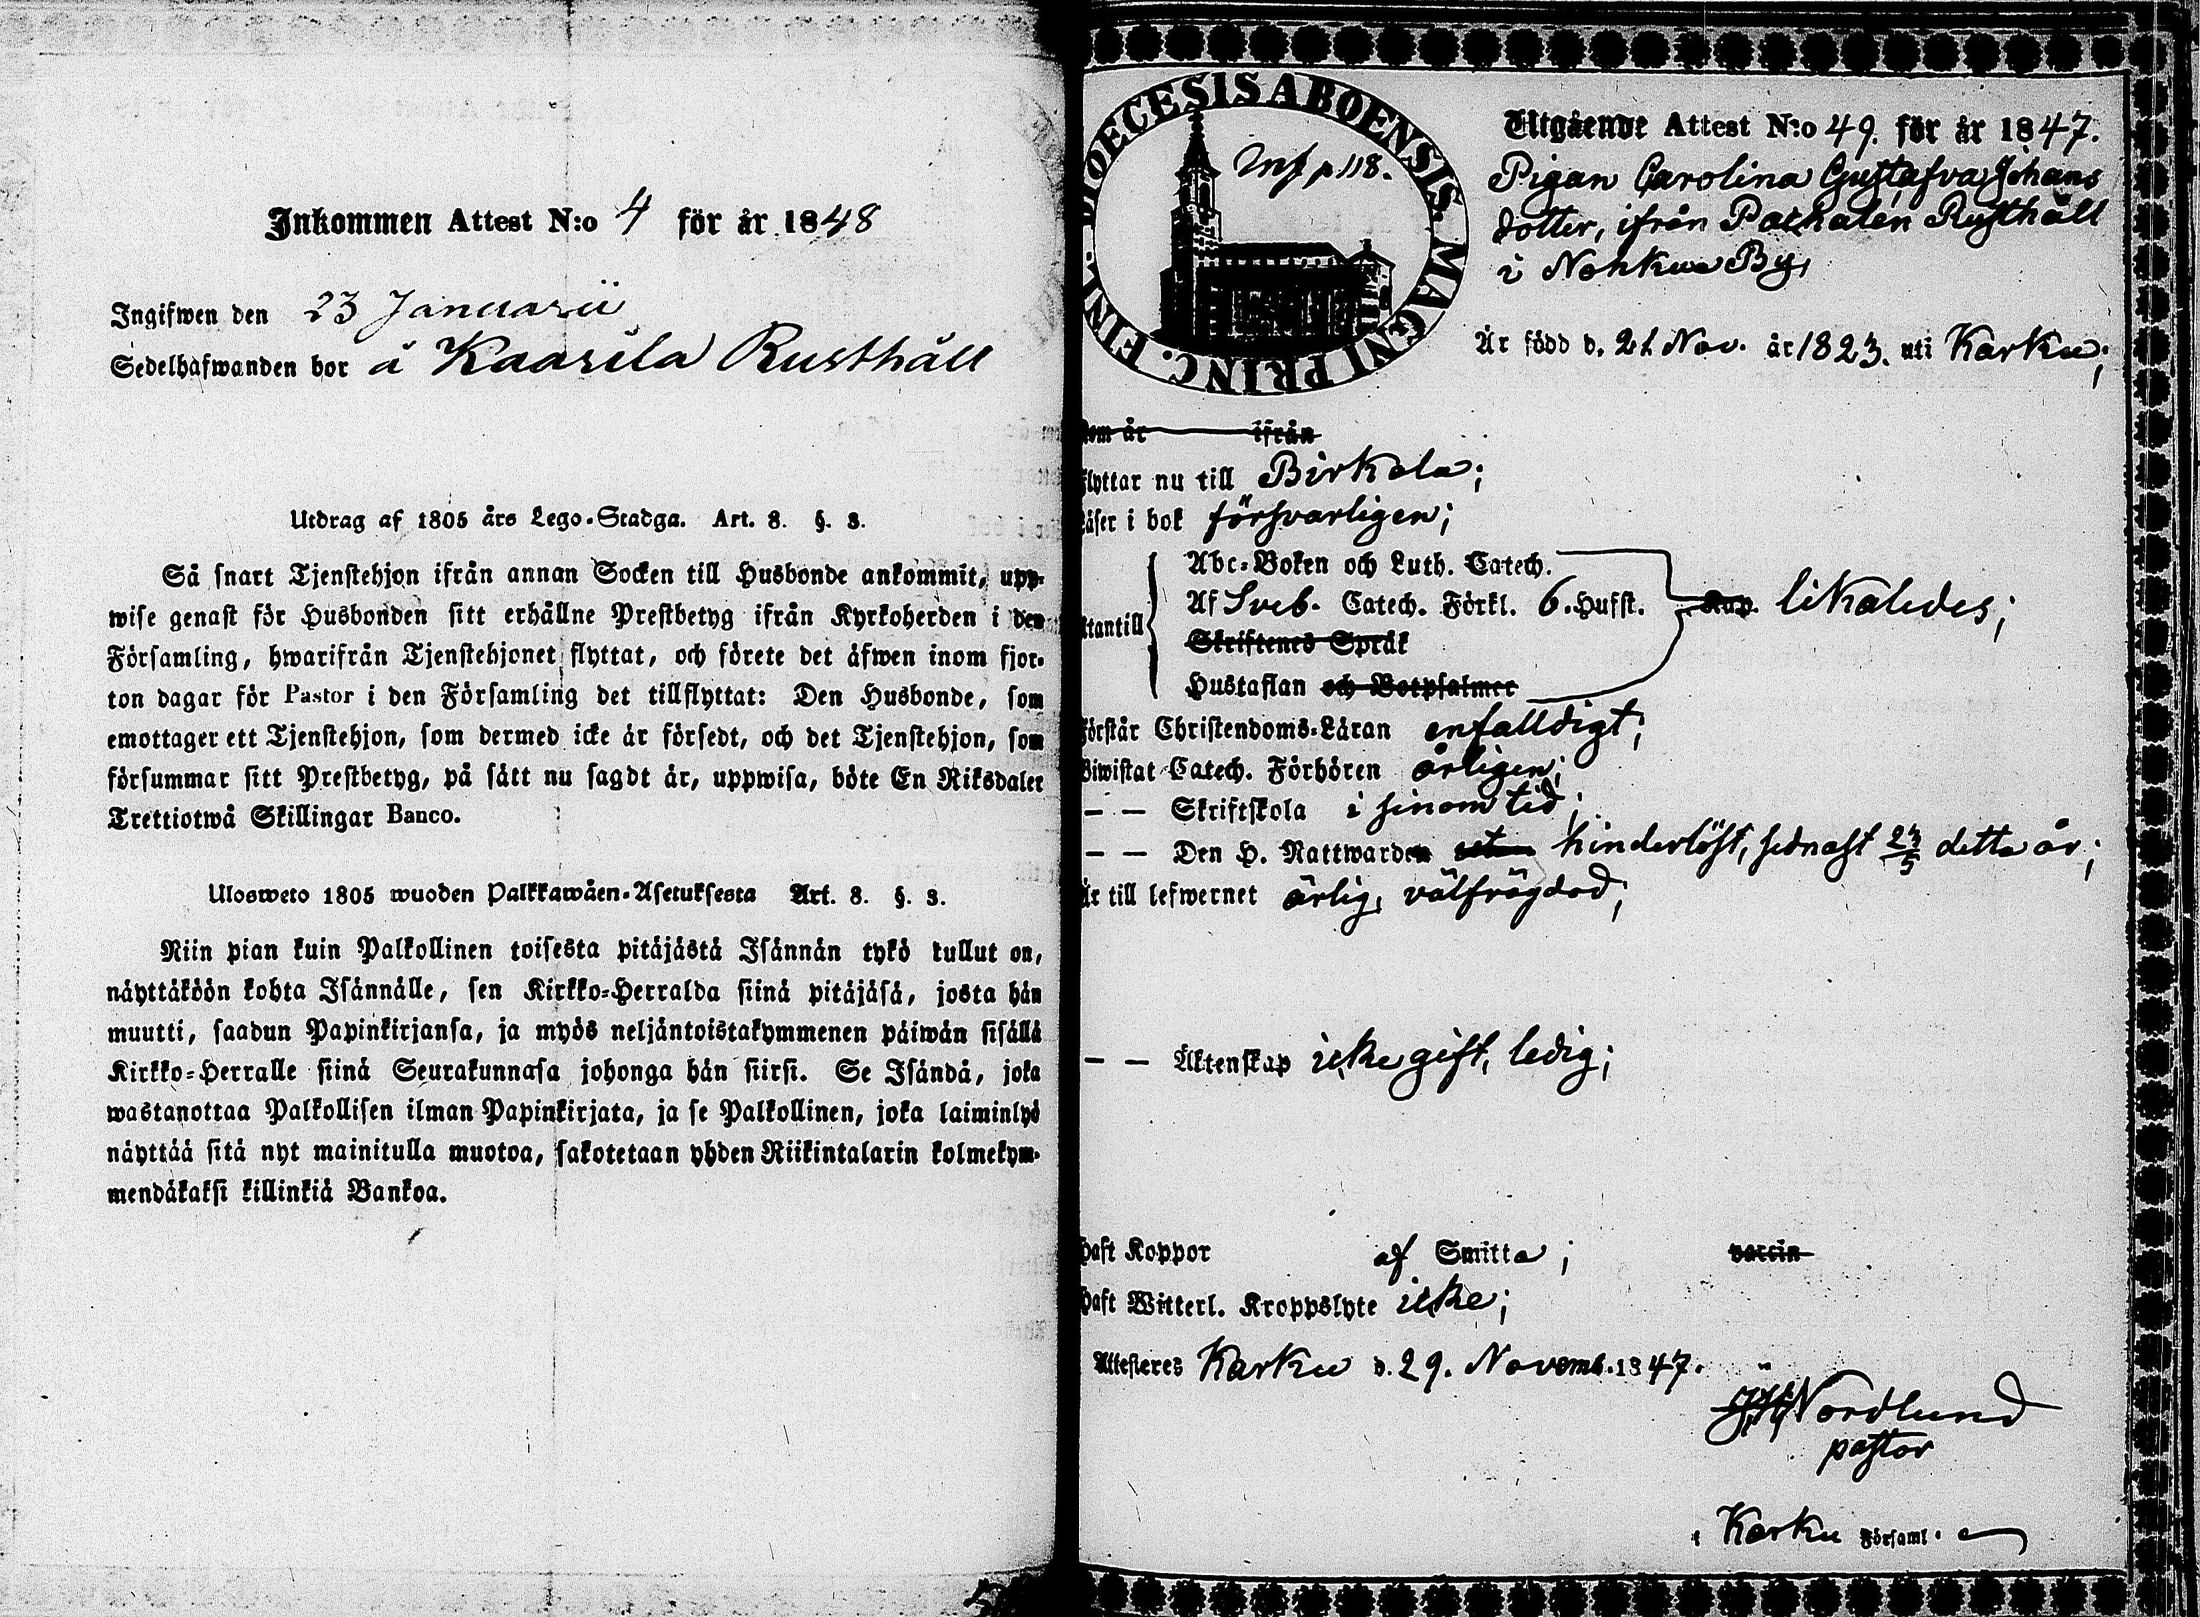 Inkommen Attest N:o 4 för år 1848
Ingifwen den 23 Januarii
Sedelhafwanden bor å Kaarila Rusthåll
Utdrag af 1805 års Lego-Stadga. Art. 8. §. 3.
Så snart Tjenstehjon ifrån annan Socken till Husbonde ankommit, upp-
wise genast för Husbonden sitt erhållne Prestbetyg ifrån Kyrkoherden i den
Församling, hwarifrån Tjenstehjonet flyttat, och förete det äfwen inom fjor-
ton dagar för Pastor i den Församling det tillflyttat: Den Husbonde, som
emottager ett Tjenstehjon, som dermed icke är försedt, och det Tjenstehjon, som
försummar sitt Prestbetyg, på sätt nu sagdt är, uppwisa, böte En Riksdaler
Trettiotwå Skillingar Banco.
Ulosweto 1805 wuoden Palkkawäen-Asetuksesta Art. 8. §. 3.
Niin pian kuin Palkollinen toisesta pitäjästä Isännän tykö tullut on,
näyttäköön kohta Isännälle, sen Kirkko-Herralda siinä pitäjäsä, josta hän
muutti, saadun Papinkirjansa, ja myös neljäntoistakymmenen päiwän sisällä
Kirkko-Herralle siinä Seurakunnasa johonga hän siirsi. Se Isändä, joka
wastanottaa Palkollisen ilman Papinkirjata, ja se Palkollinen, joka laiminlyö
näyttää sitä nyt mainitulla muotoa, sakotetaan yhden Riikintalarin kolmekym-
mendäkaksi killinkiä Bankoa.
DIOECESIS ABOENSIS. MAGNI PRINC. FINL.
p 118.
Utgående Attest N:o 49. för år 1847.
Pigan Carolina Gustafva Johans
dotter, ifrån Rusthåll
i Nohkua By,
Är född d. 21 Nov. år 1823. uti Karku;
kom år ifrån
flyttar nu till Birkala;
läser i bok försvarligen;
Abc-Boken och Luth. Catech.
utantill Af Sveb. Catech. Förkl. 6. Hufst. Kap. likaledes;
Skriftenes Språk
Hustaflan och Botpsalmer
förstår Christendoms-Läran enfalldigt;
Biwistat Catech. Förhören årligen;
— — Skriftskola i sinom tid;
— — Den H. Nattwarden utan hinderlöst, sednast 23/5 detta år;
Är till lefwernet ärlig, välfrägdad;
— — Äktenskap icke gift, ledig;
haft Koppor af Smitta; vaccin
haft Witterl. Kroppslyte icke;
Attesteres Karku d. 29. Novemb. 1847.
Nordlund
pastor
i Karku Församl.